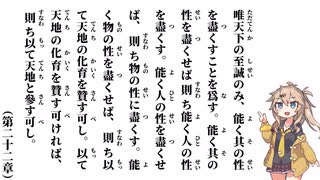 唯天下の至誠のみ、能く其の性
を盡くすことを爲す。能く其の
性を盡くせば則ち能く人の性
を盡くす。能く人の性を盡くせ
ば、則ち物の性に盡くす。能
く物の性を盡くせば、則ち以
て天地の化育を贊す可し。以て
天地の化育を贊す可ければ、
則ち以て天地と參す可し。
（第二十二章）